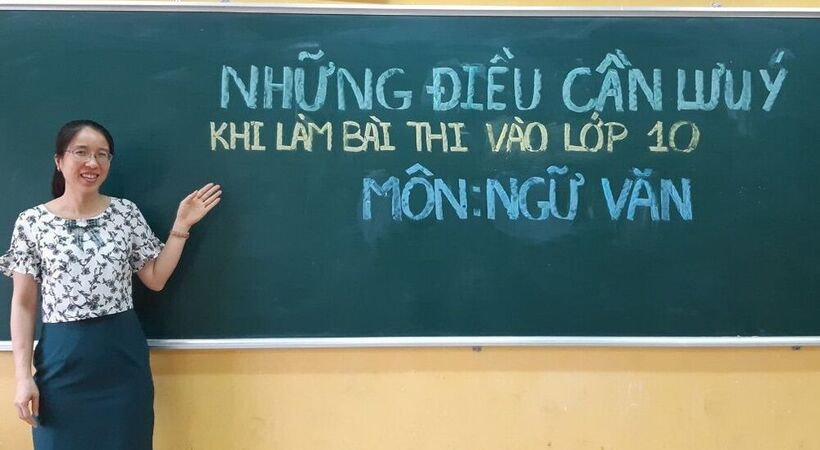 NHỮNG ĐIỀU CẦN LƯU Ý
KHI LÀM BÀI THI VÀO LỚP 10
MÔN: NGỮ VĂN